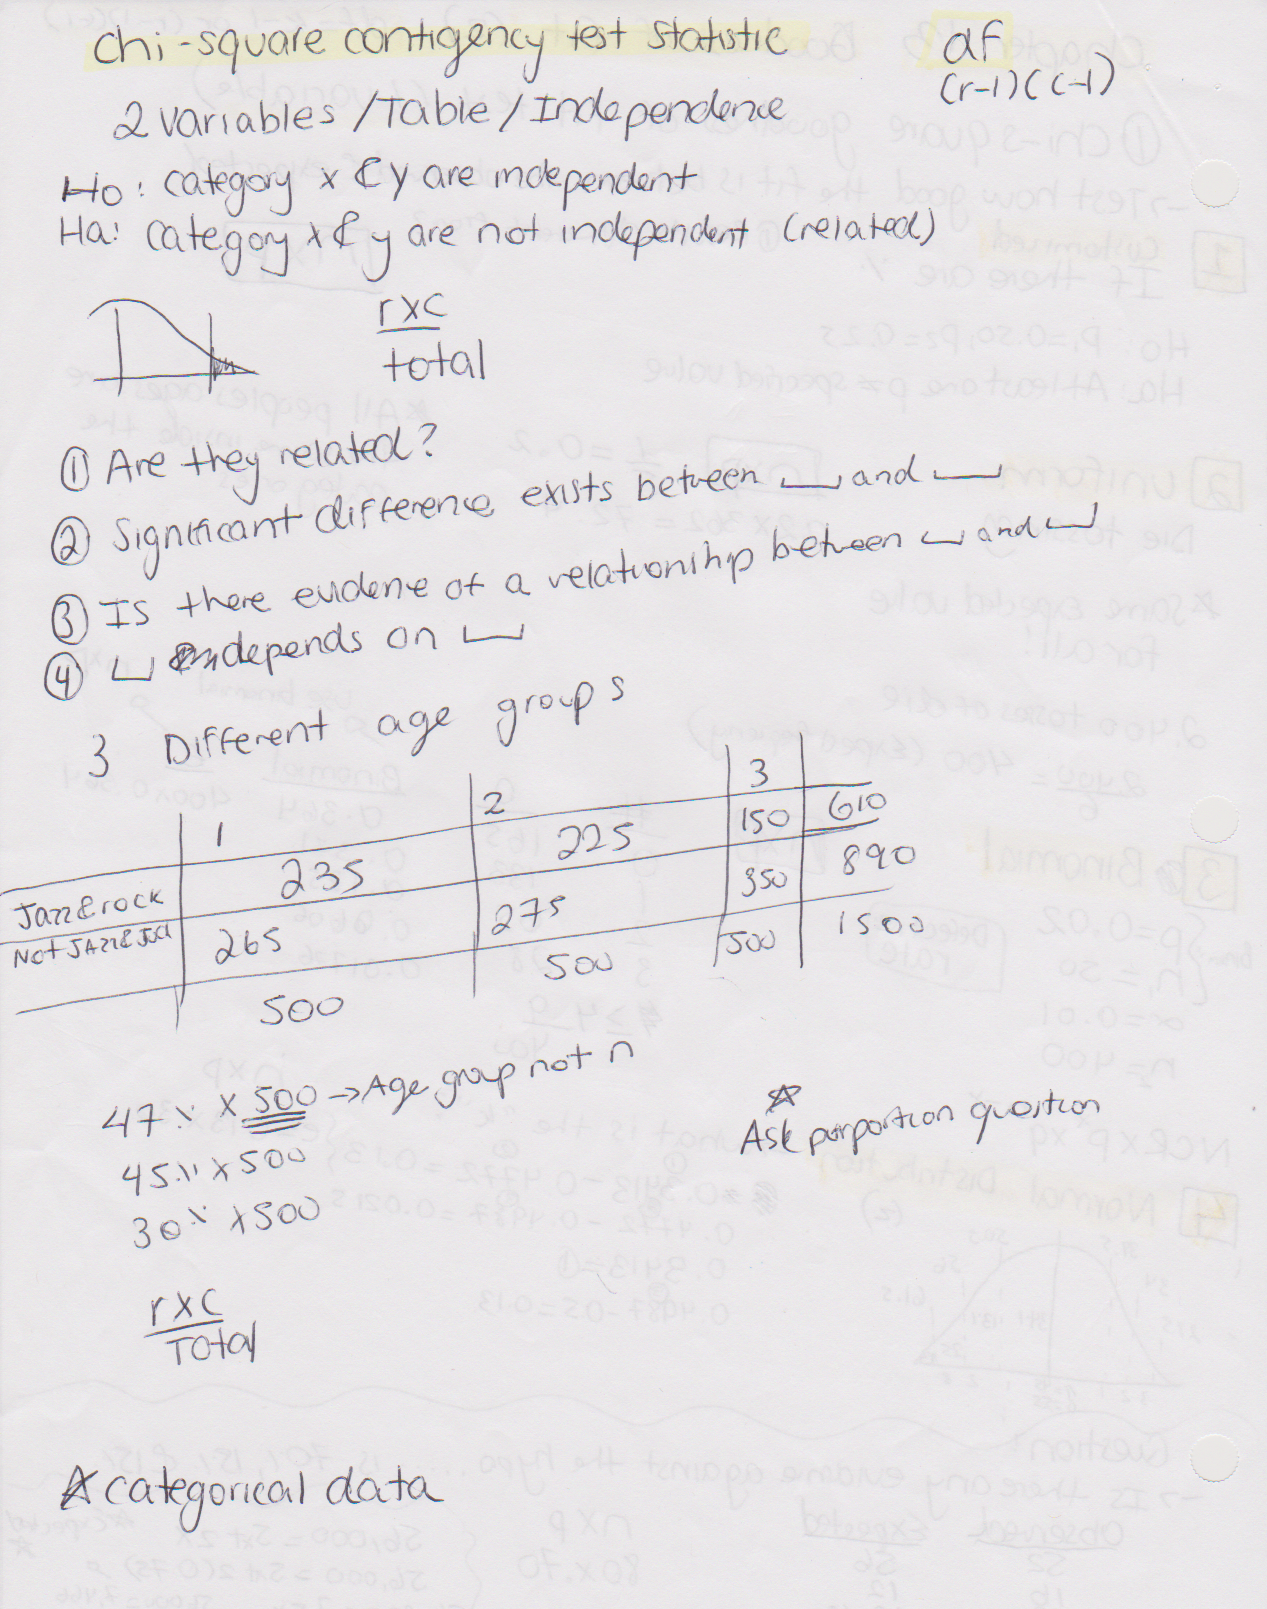 Chi-square contigency test statistic df
(r-1)(c-1)
2 variables / Table / Independence
Ho: category x & y are independent
Ha: category x & y are not independent (related)
rxc
total
① Are they related?
② Significant difference exists between ⌴ and ⌴
③ Is there evidence of a relationship between ⌴ and ⌴
④ ⌴ depends on ⌴
3 Different age groups
1 2 3
Jazz & rock 235 225 150 610
265 275 350 890
500 500 500 1500
47% x 500 → Age group not n
45% x 500
30% x 500
☆
Ask porportion question
rxc
Total
☆ categorical data